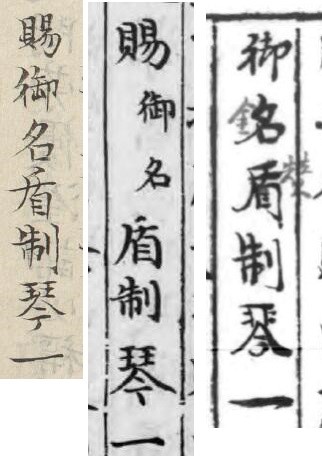 賜御名盾制琴一
賜御名盾制琴一
御銘盾制琴一